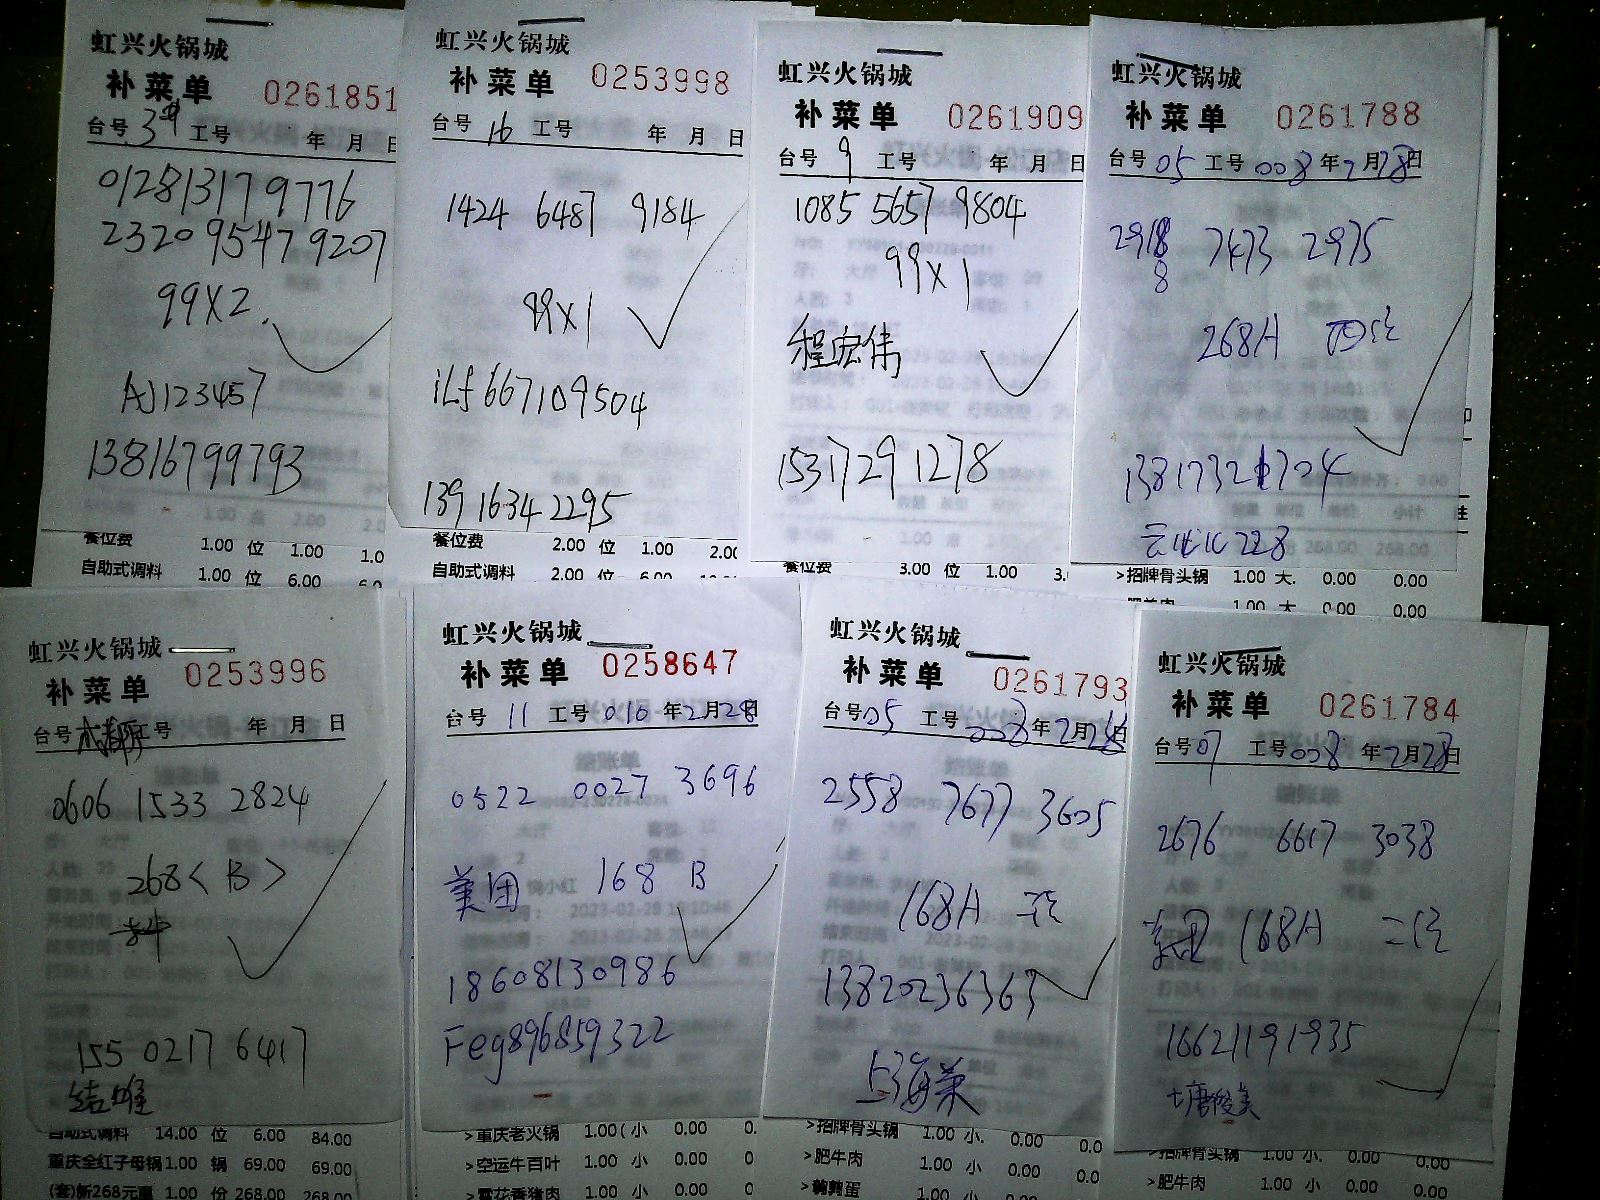 虹兴火锅城
补菜单 0261851
台号 3 工号 年 月 日
0128 1317 9776
2320 9547 9207
99X2.
AJ123457
13816799793
餐位费 1.00 位 1.00 1.0
自助式调料 1.00 位 6.00 6.0
虹兴火锅城
补菜单 0253998
台号 16 工号 年 月 日
1424 6487 9184
99X1
iLf667109504
13916342295
餐位费 2.00 位 1.00 2.00
自助式调料 2.00 位 6.00
虹兴火锅城
补菜单 0261909
台号 9 工号 年 月 日
1085 5657 9804
99X1
程宏伟
15317291278
餐位费 3.00 位 1.00 3.
虹兴火锅城
补菜单 0261788
台号 05 工号 008 年 2 月 28 日
2918 7473 2975
8
268A 四位
13817321704
云北北228
>招牌骨头锅 1.00 大. 0.00 0.00
肥羊肉 1.00 大 0.00 0.00
虹兴火锅城
补菜单 0253996
台号 工号 年 月 日
0606 1533 2824
268<B>
155 0217 6417
自助式调料 14.00 位 6.00 84.00
重庆全红子母锅 1.00 锅 69.00 69.00
(套)新268元重 1.00 份 268.00 268.00
虹兴火锅城
补菜单 0258647
台号 11 工号 010 年 2 月 28 日
0522 0027 3696
美团 168 B
18608130986
Feg896859322
>重庆老火锅 1.00 (小 0.00 0.
>空运牛百叶 1.00 小 0.00 0.
>雪花香猪肉 1.00 小 0.00 0.
虹兴火锅城
补菜单 0261793
台号 05 工号 008 年 2 月 日
2558 7677 3605
168A 二位
13820236363
>招牌骨头锅 1.00 小. 0.00 0.0
>肥牛肉 1.00 小 0.00 0.0
>鹌鹑蛋 1.00 小 0.00 0.0
虹兴火锅城
补菜单 0261784
台号 07 工号 008 年 2 月 28 日
2676 6617 3038
美团 168A 二位
16621191935
>招牌骨头锅 1.00 小. 0.00 0.00
>肥牛肉 1.00 小 0.00 0.00